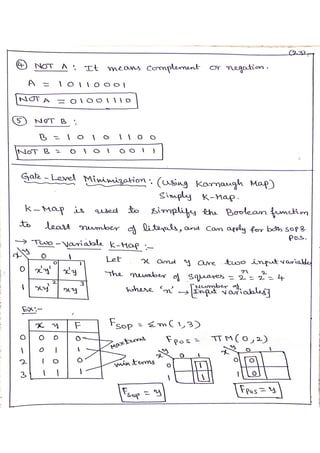 (23)
④ NOT A : It means complement or negation.
A = 10110001
NOT A = 01001110
⑤ NOT B :
B = 10101100
NOT B = 01010011
Gate-Level Minimization : (Using Karnaugh Map)
Simply K-Map.
K-Map is used to simplify the Boolean function
to least number of literals, and can apply for both SOP &
POS.
→ Two-Variable K-Map :-
x y 0 1
0 x'y' 0 x'y 1
1 xy' 2 xy 3
Let x and y are two input variable
The number of squares = 2ⁿ = 2² = 4
where 'n' → [Number of Input variables]
Ex:-
x y F
0 0 0 0
1 0 1 1
2 1 0 0
3 1 1 1
Maxterms
minterms
F SOP = Σm(1,3)
x y 0 1
0 1
1 1
F SOP = y
F POS = ΠM(0,2)
x y 0 1
0 0
1 0
F POS = y